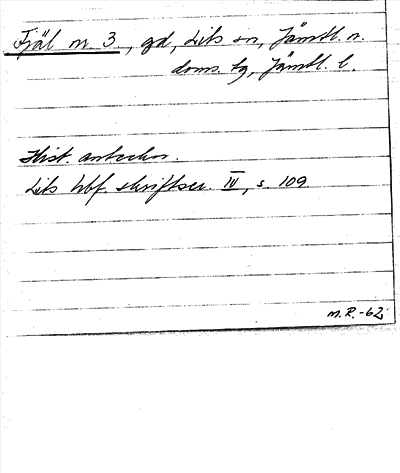 Fjäl nr. 3., gd, Lits sn, Jämtl. n.
doms. tg, Jämtl. l.
Hist. anteckn.
Lits hbf. skriftser. IV, s. 109
M.R.-62